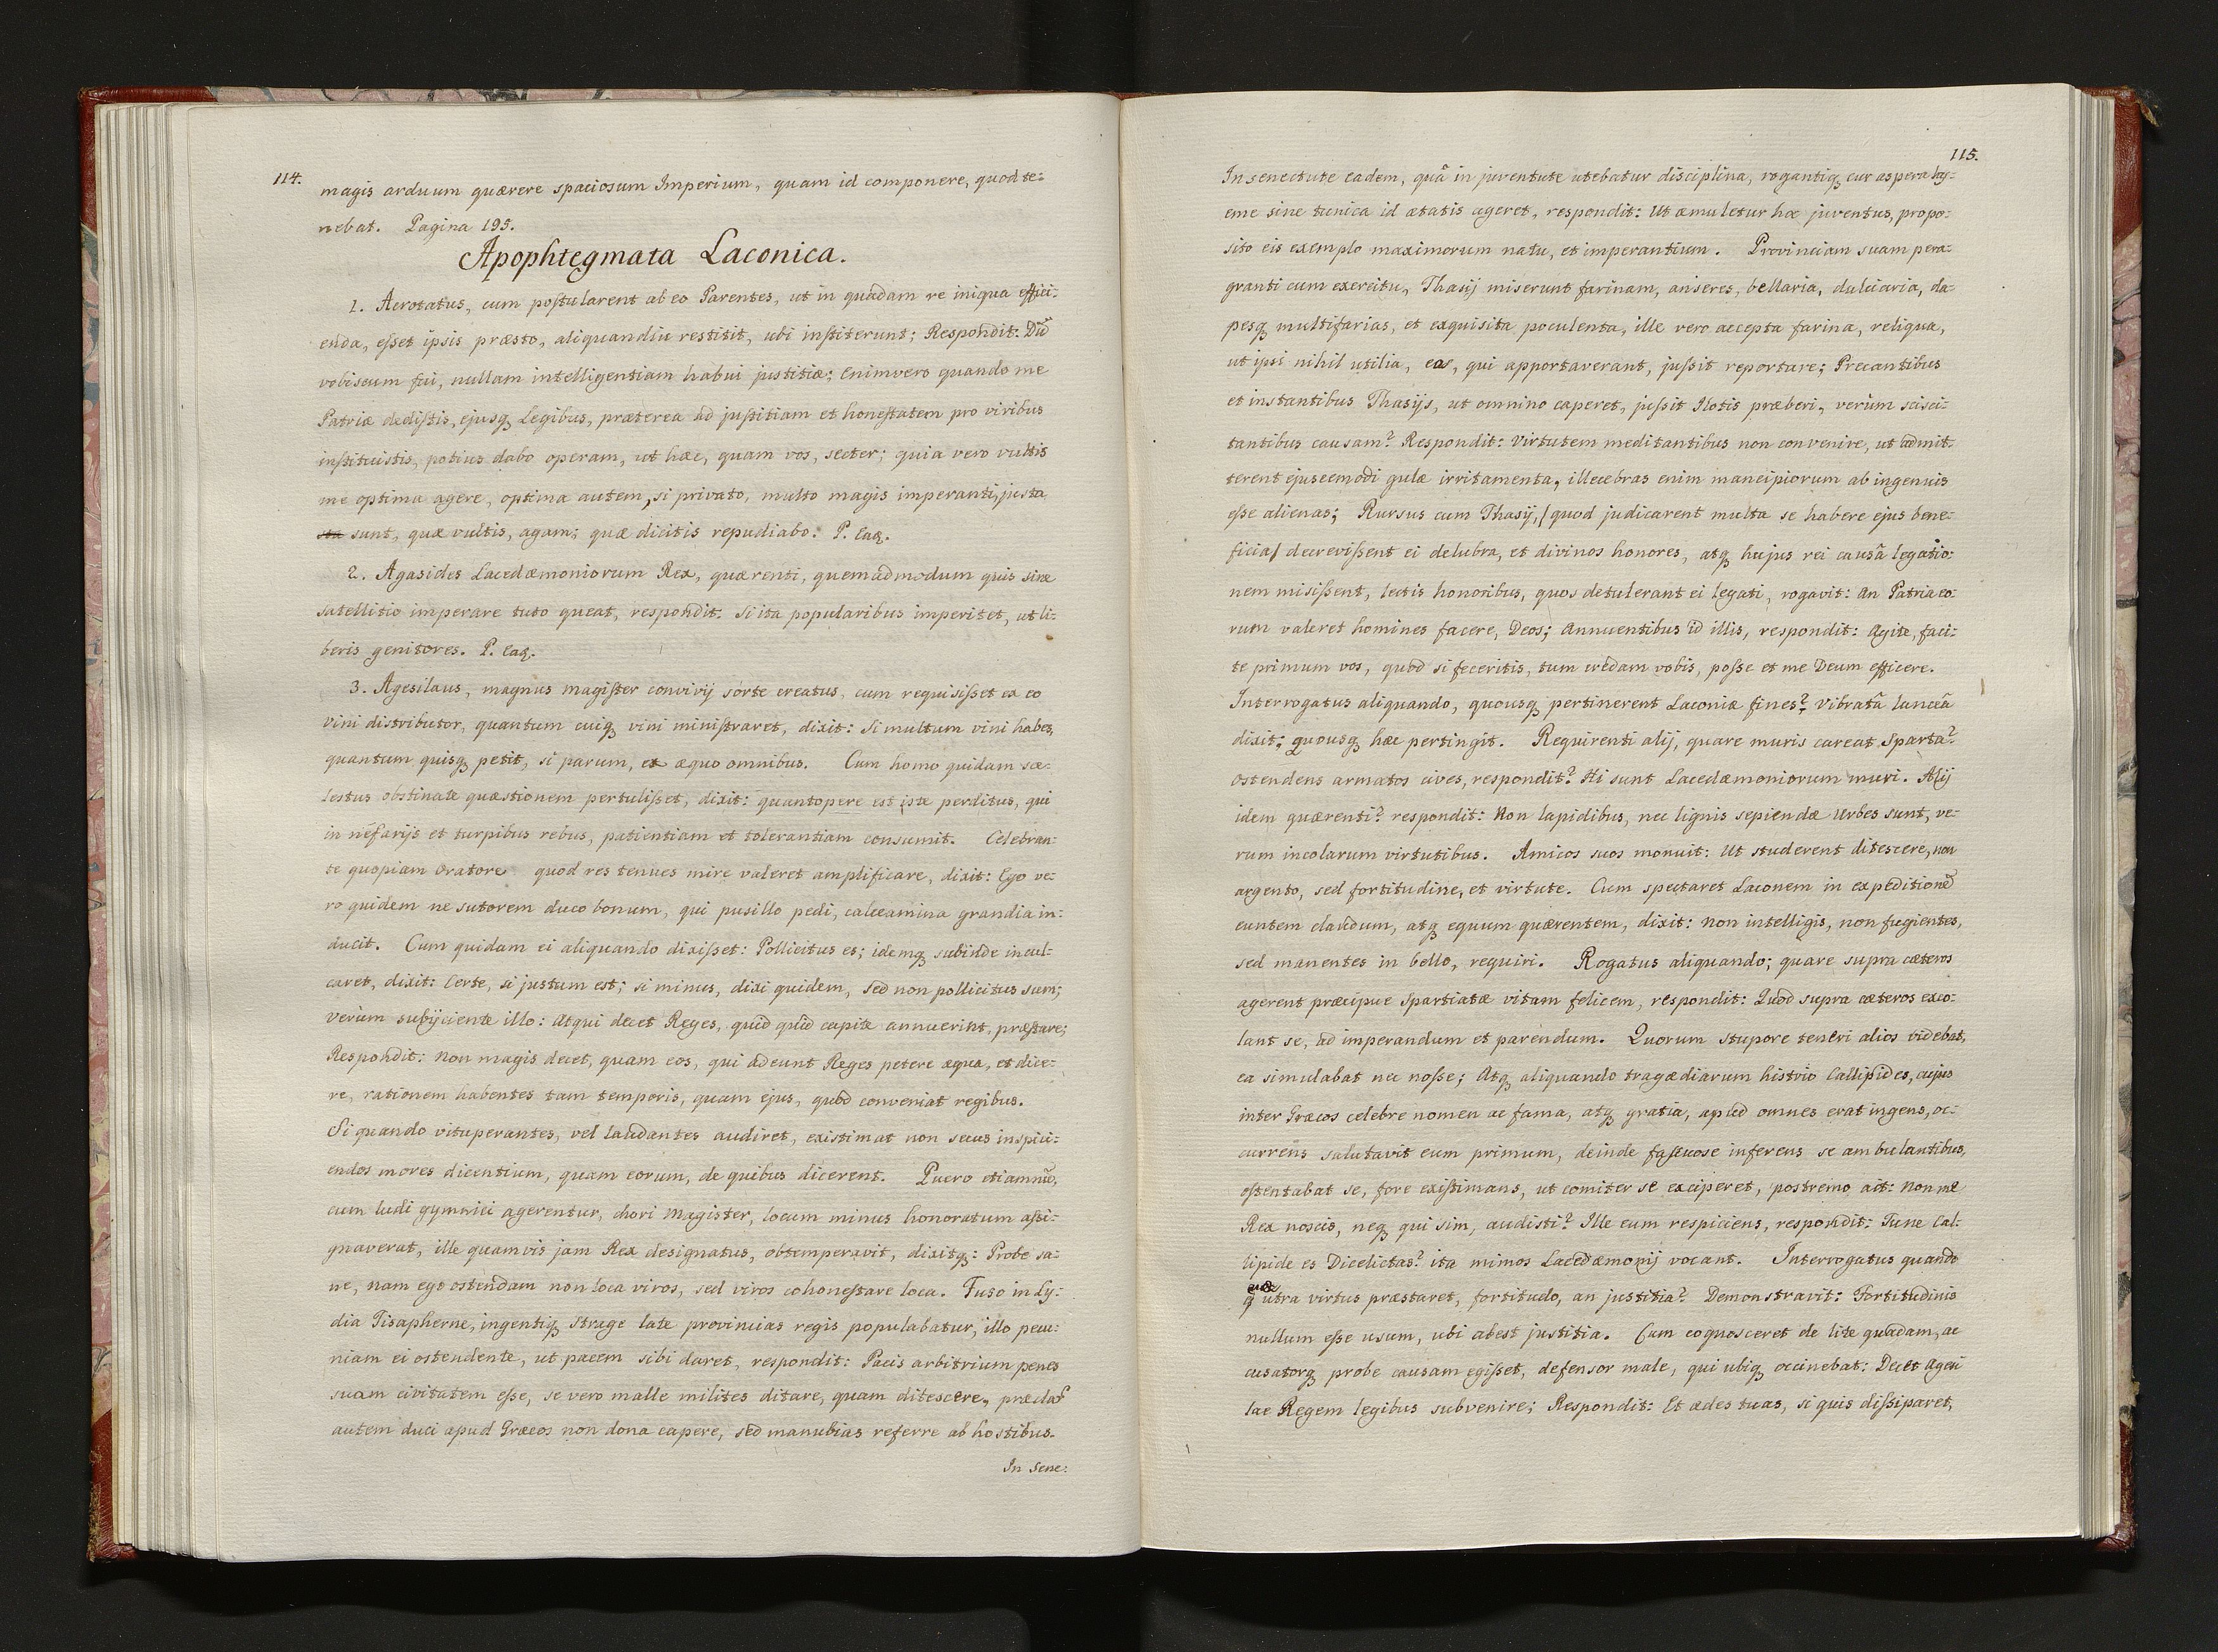 114.
magis arduum quærere spaciosum Imperium, quam id componere, quod te=
nebat. Pagina 195.
Apophtegmata Laconica.
1. Acrotatus, cum postularent ab eo Parentes, ut in quadam re iniqua effici=
enda, esset ipsis præsto, aliquandiu restitit, ubi institerunt; Respondit: Dũ
vobiscum fui, nullam intelligentiam habui justitiæ; Enimvero quando me
Patriæ dedistis, ejusq Legibus, præterea ad justitiam et honestatem pro viribus
instituistis, potius dabo operam, ut hæc, quam vos, secter; quia vero vultis
me optima agere, optima autem, si privato, multo magis imperanti, justa
sta sunt, quæ vultis, agam; quæ dicitis repudiabo. P. Eaq.
2. Agasides Lacedæmoniorum Rex, quærenti, quemadmodum quis sine
satellitio imperare tuto queat, respondit. Si ita popularibus imperitet, ut li=
beris genitores. P. Eaq.
3. Agesilaus, magnus magister convivij sorte creatus, cum requisisset ex eo
vini distributor, quantum cuiq vini ministraret, dixit: Si multum vini habes,
quantum quisq petit, si parum, ex æquo omnibus. Cum homo quidam sce=
lestus obstinate quæstionem pertulisset, dixit: quantopere est iste perditus, qui
in nefarijs et turpibus rebus, patientiam et tolerantiam consumit. Celebran=
te quopiam Oratore quod res tenues mire valeret amplificare, dixit: Ego ve=
ro quidem ne sutorem duco bonum, qui pusillo pedi, calceamina grandia in=
ducit. Cum quidam ei aliquando dixisset: Pollicitus es; idemq subinde incul=
caret, dixit: Certe, si justum est; si minus, dixi quidem, sed non pollicitus sum;
verùm subijciente illo: Atqui decet Reges, quid quid capite annuerint, præstare;
Respondit: Non magis decet, quam eos, qui adeunt Reges petere æqua, et dice=
re, rationem habentes tam temporis, quam ejus, quod conveniat regibus.
Si quando vituperantes, vel laudantes audiret, existimat non secus inspici=
endos mores dicentium, quam eorum, de quibus dicerent. Puero etiamnũ,
cum ludi gymnici agerentur, chori Magister, locum minus honoratum assi=
gnaverat, ille quamvis jam Rex designatus, obtemperavit, dixitq: Probe sa=
ne, nam ego ostendam non loca viros, sed viros cohonestare loca. Fuso in Ly=
dia Tisapherne, ingentiq strage late provincias regis populabatur, illo pecu=
niam ei ostendente, ut pacem sibi daret, respondit: Pacis arbitrium penes
suam civitatem esse, se vero malle milites ditare, quam ditescere,
autem duci apud Græcos non dona capere, sed manubias referre ab hostibus.
In Sene:
115.
In senectute eadem, quâ in juventute utebatur disciplina, rogantiq cur aspera hy=
eme sine tunica id ætatis ageret, respondit: Ut æmuletur hæc juventus, propo=
sito eis exemplo maximorum natu, et imperantium. Provinciam suam pera=
granti cum exercitu, Thasij miserunt farinam, anseres, bellaria, dulciaria, da=
pesq multifarias, et exquisita poculenta, ille vero accepta farina, reliqua,
ut ipsi nihil utilia, eas, qui apportaverant, jussit reportare; Precantibus
et instantibus Thasijs, ut omnino caperet, jussit Ilotis præberi, verùm scisci=
tantibus causam? Respondit: Virtutem meditantibus non convenire, ut admit=
terent ejuscemodi gulæ irritamenta, illecebras enim mancipiorum ab ingenuis
esse alienas; Rursus cum Thasij, /quod judicarent multa se habere ejus bene=
ficia/ decrevissent ei delubra, et divinos honores, atq hujus rei causâ legatio=
nem misissent, lectis honoribus, quos detulerant ei legati, rogavit: An Patria eo=
rum valeret homines facere, Deos; Annuentibus id illis, respondit: Agite, faci=
te primum vos, quod si feceritis, tum credam vobis, posse et me Deum efficere.
Interrogatus aliquando, quousq pertinerent Laconiæ fines? Vibratâ lanceâ
dixit; quousq hæc pertingit. Requirenti alij, quare muris careat Sparta?
Ostendens armatos cives, respondit? Hi sunt Lacedæmoniorum muri. Alij
idem quærenti? respondit: Non lapidibus, nec lignis sepiendæ Urbes sunt, ve=
rum incolarum virtutibus. Amicos suos monuit: Ut studerent ditescere, non
argento, sed fortitudine, et virtute. Cum spectaret Laconem in expeditionẽ
euntem claudum, atq equum quærentem, dixit: Non intelligis, non fugientes,
sed manentes in bello, requiri. Rogatus aliquando; quare supra cæteros
agerent præcipue Spartiatæ vitam felicem, respondit: Quod supra cæteros exco=
lant se, ad imperandum et parendum. Quorum stupore teneri alios videbat,
ea simulabat nec nosse; Atq aliquando tragædiarum histrio Callipides, cujus
inter Græcos celebre nomen ac fama, atq gratia, apud omnes erat ingens, oc=
currens salutavit eum primum, deinde fastuose inferens se ambulantibus,
ostentabat se, fore existimans, ut comiter se exciperet, postremo ait: Non me
Rex noscis, neq qui sim, audisti? Ille eum respiciens, respondit: Tune Cal=
lipide es Dicelictas? ita mimos Lacedæmonij vocant. Interrogatus quando
q utra virtus præstaret, fortitudo, an justitia? Demonstravit: Fortitudinis
nullum esse usum, ubi abest justitia. Cum cognosceret de lite quadam, ac
cusatorq probe causam egisset, defensor male, qui ubiq occinebat: Decet Agesi
lae Regem legibus subvenire; Respondit: Et ædes tuas, si quis dissiparet,